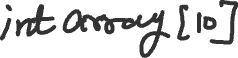 int array [10]